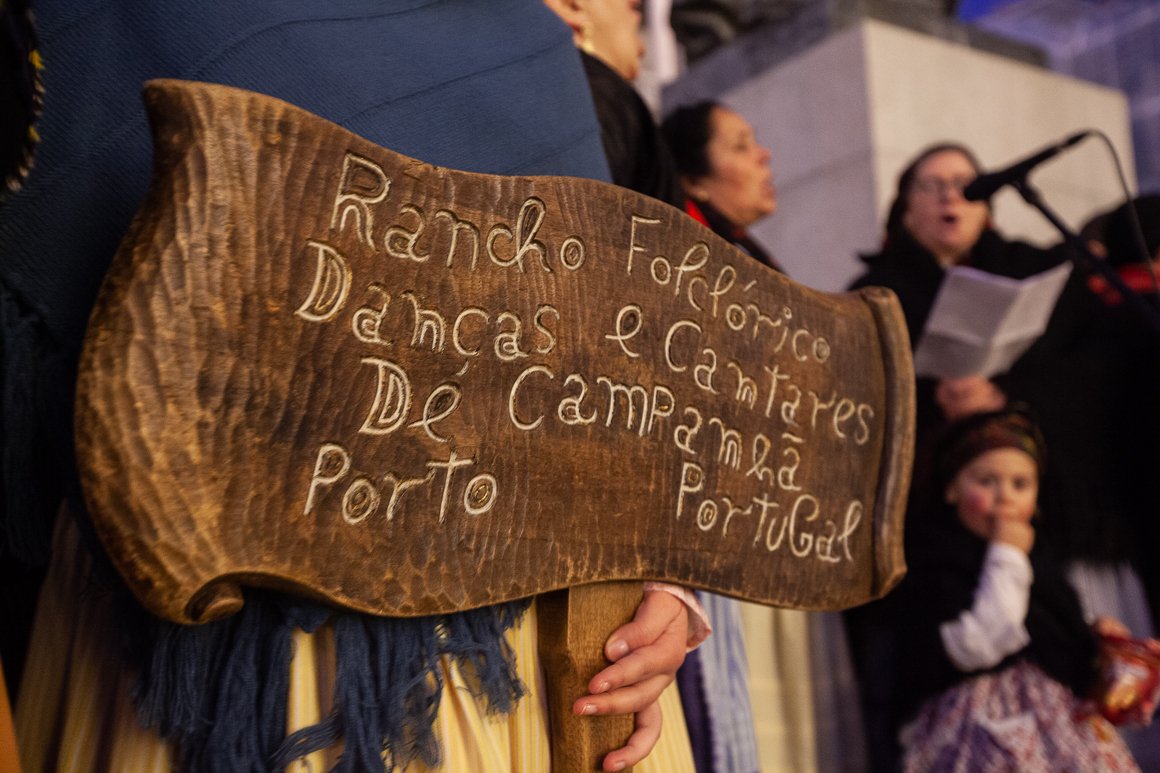 Rancho Folclórico
Danças e Cantares
De Campanhã
Porto Portugal